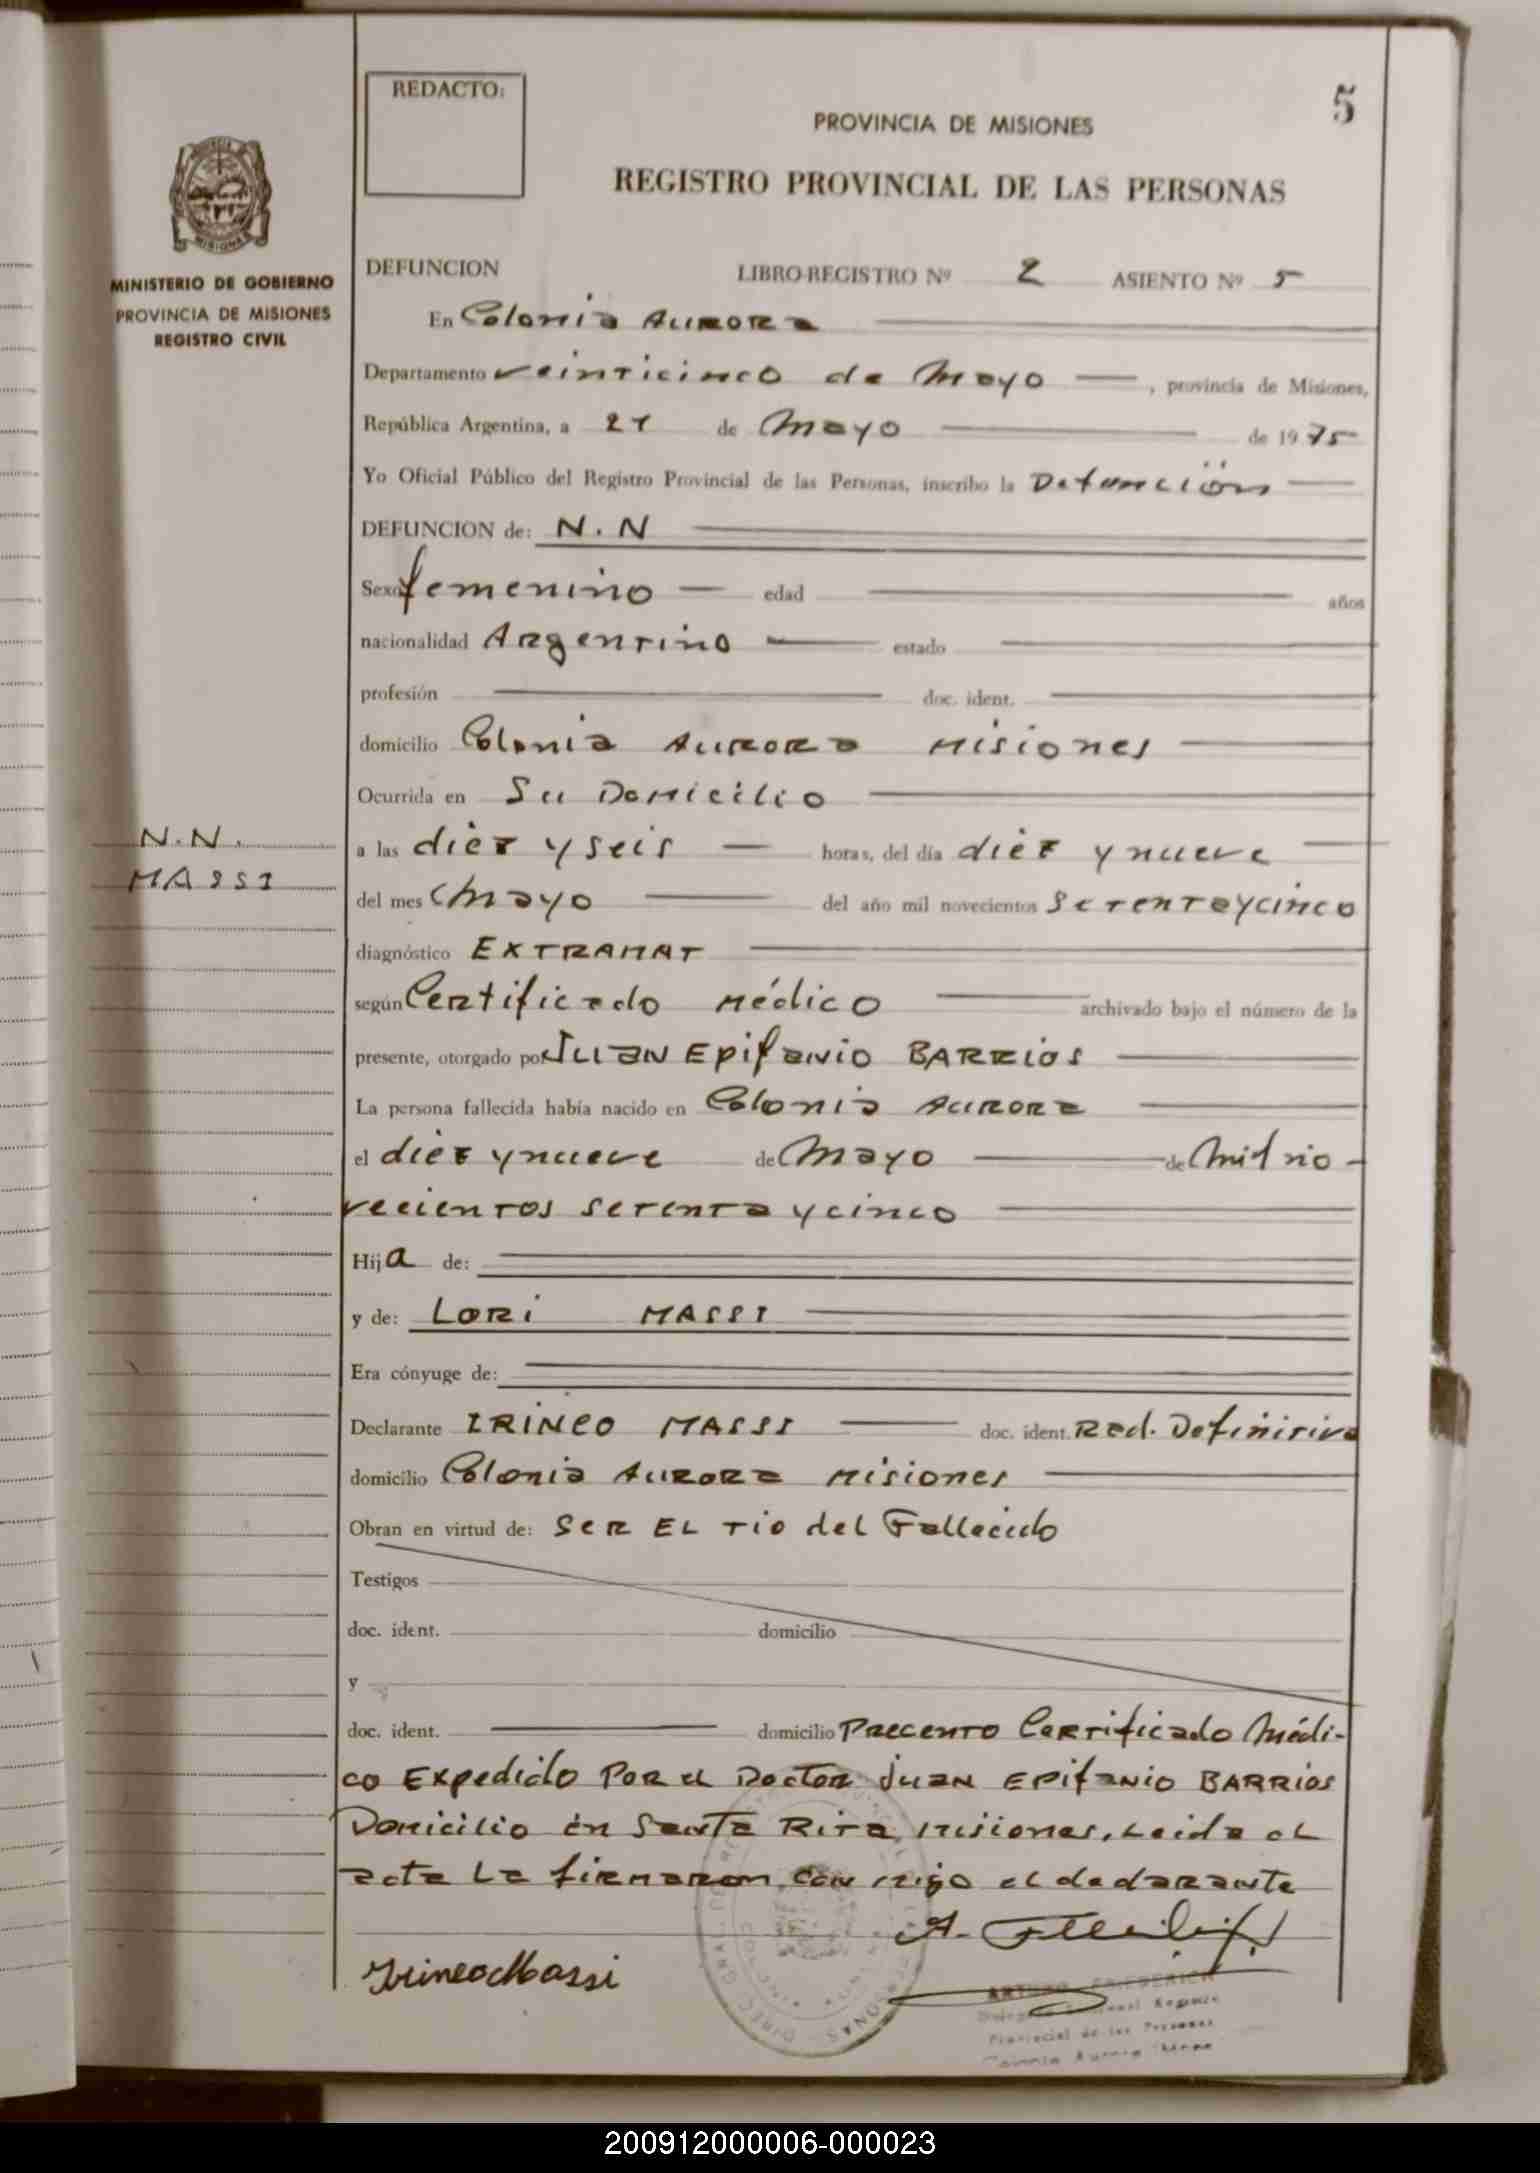 REDACTO:
5
PROVINCIA DE MISIONES
REGISTRO PROVINCIAL DE LAS PERSONAS
MISIONES
MINISTERIO DE GOBIERNO
PROVINCIA DE MISIONES
REGISTRO CIVIL
DEFUNCION LIBRO-REGISTRO Nº 2 ASIENTO Nº 5
En Colonia AURORA
Departamento veinticinco de Mayo, provincia de Misiones,
República Argentina, a 21 de Mayo de 1975
Yo Oficial Público del Registro Provincial de las Personas, inscribo la Defunción
DEFUNCION de: N.N
Sexo femenino edad años
nacionalidad Argentino estado
profesión doc. ident.
domicilio Colonia AURORA Misiones
Ocurrida en Su Domicilio
N.N.
MASSI
a las diez y seis horas, del día diez y nueve
del mes Mayo del año mil novecientos Setentaycinco
diagnóstico EXTRAMAT
según Certificado Médico archivado bajo el número de la
presente, otorgado por JUAN Epifanio BARRIOS
La persona fallecida había nacido en Colonia AURORA
el diez y nueve de Mayo de Mil no-
vecientos setenta y cinco
Hija de:
y de: LORI MASSI
Era cónyuge de:
Declarante IRINEO MASSI doc. ident. Rad. Definitiva
domicilio Colonia AURORA Misiones
Obran en virtud de: SER EL tio del Fallecido
Testigos
doc. ident. domicilio
y
doc. ident. domicilio Precento Certificado Médi-
co Expedido POR el Doctor JUAN EPifanio BARRIOS
Domicilio en Santa Rita Misiones, Leida el
acta La firmaron con migo el declarante
Irineo Massi
ARTURO FRIEDERICH
Provincial de las Personas
200912000006-000023